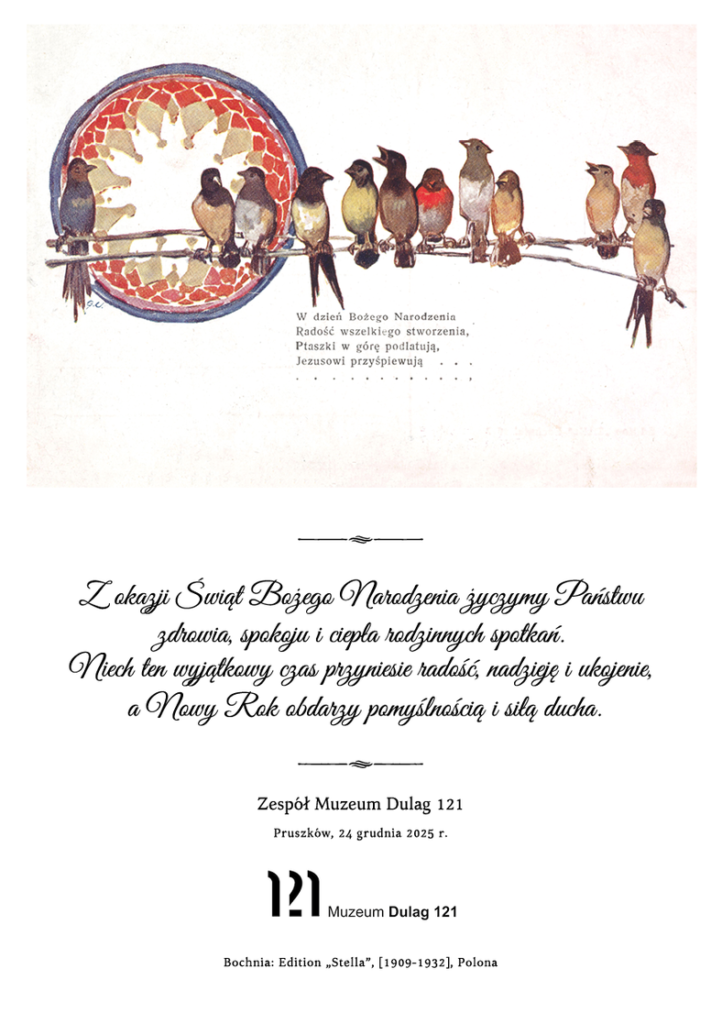 W dzień Bożego Narodzenia
Radość wszelkiego stworzenia,
Ptaszki w górę podlatują,
Jezusowi przyśpiewują . . .
. . . . . . . . . . . . ,
Z okazji Świąt Bożego Narodzenia życzymy Państwu
zdrowia, spokoju i ciepła rodzinnych spotkań.
Niech ten wyjątkowy czas przyniesie radość, nadzieję i ukojenie,
a Nowy Rok obdarzy pomyślnością i siłą ducha.
Zespół Muzeum Dulag 121
Pruszków, 24 grudnia 2025 r.
121 Muzeum Dulag 121
Bochnia: Edition „Stella”, [1909-1932], Polona